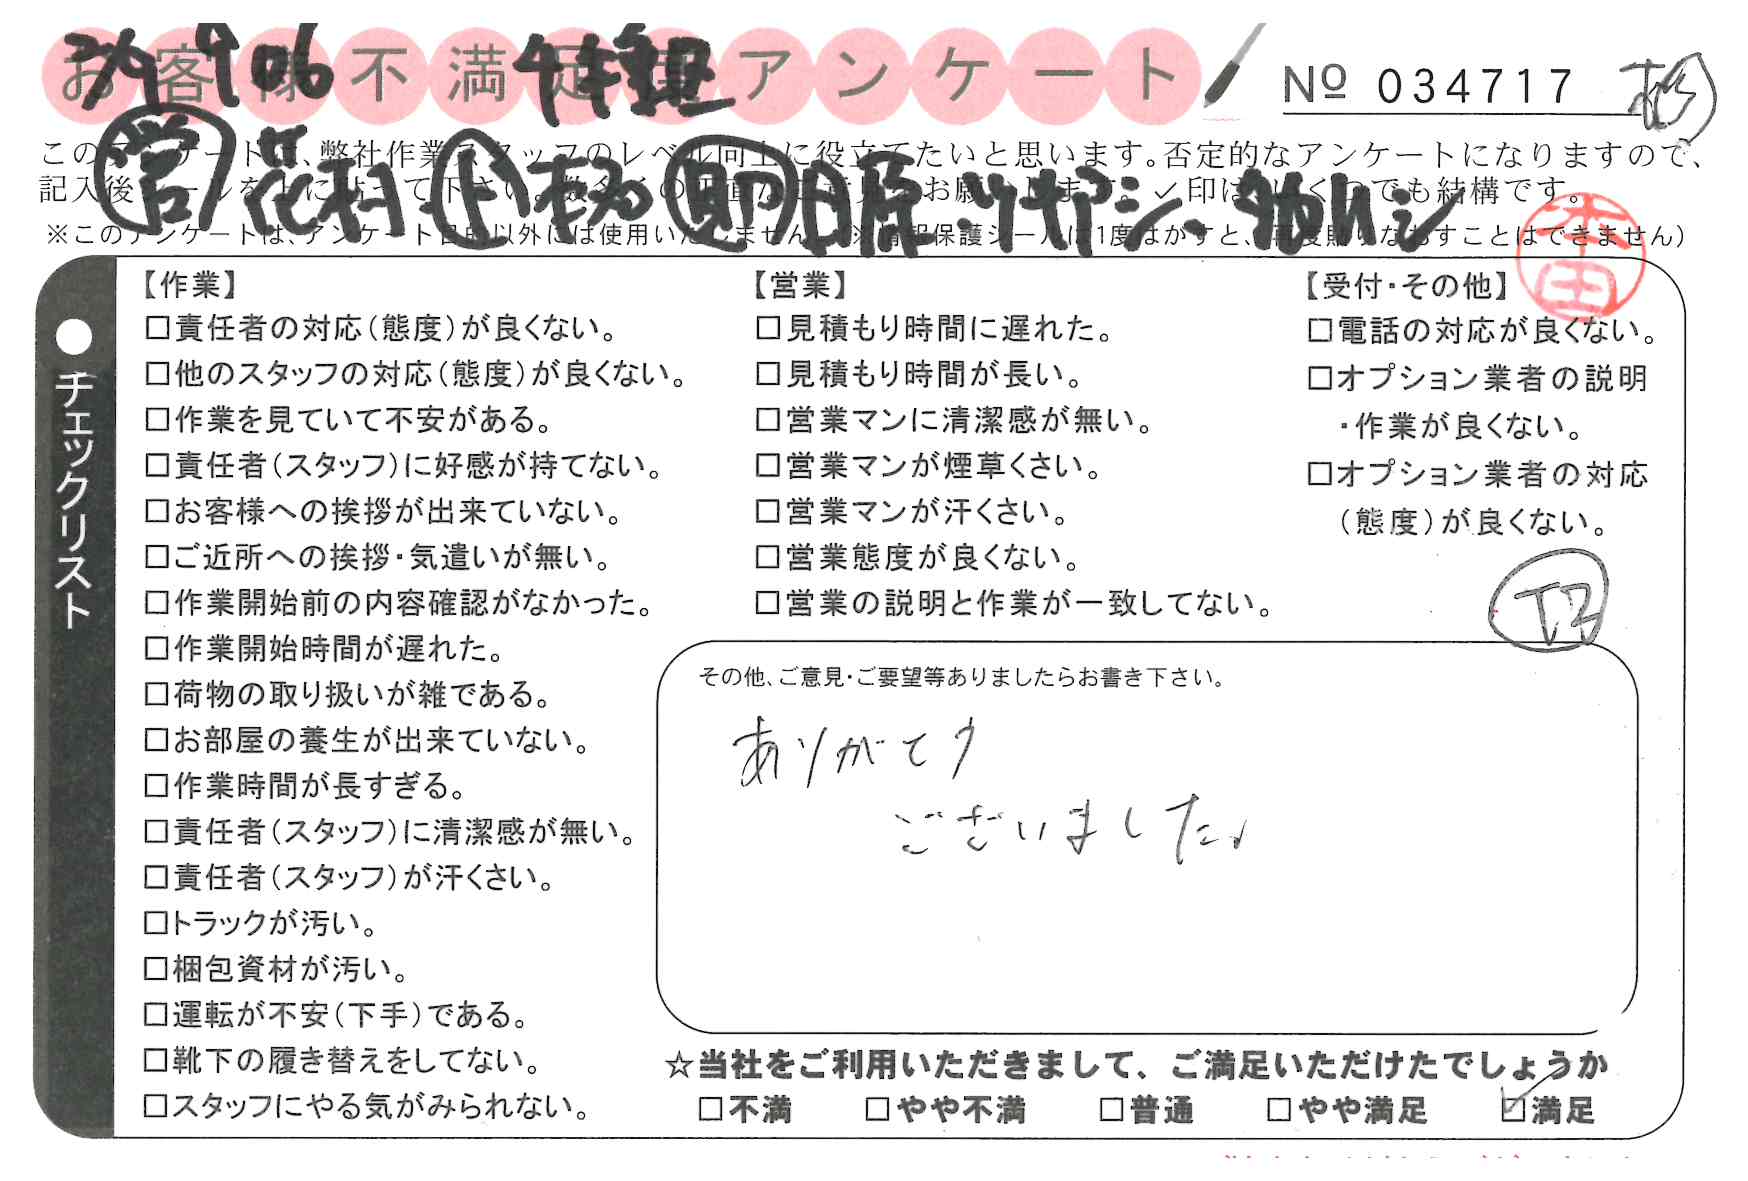 お客様不満足度アンケート
№ 034717
このアンケートは、弊社作業スタッフのレベル向上に役立てたいと思います。否定的なアンケートになりますので、
記入後シールを上に貼って下さい。数多くの正直なご意見をお願いします。✓印はいくつでも結構です。
※このアンケートは、アンケート目的以外には使用いたしません。(※情報保護シールは1度はがすと、再度貼りなおすことはできません)
本田
●チェックリスト
【作業】
□責任者の対応(態度)が良くない。
□他のスタッフの対応(態度)が良くない。
□作業を見ていて不安がある。
□責任者(スタッフ)に好感が持てない。
□お客様への挨拶が出来ていない。
□ご近所への挨拶・気遣いが無い。
□作業開始前の内容確認がなかった。
□作業開始時間が遅れた。
□荷物の取り扱いが雑である。
□お部屋の養生が出来ていない。
□作業時間が長すぎる。
□責任者(スタッフ)に清潔感が無い。
□責任者(スタッフ)が汗くさい。
□トラックが汚い。
□梱包資材が汚い。
□運転が不安(下手)である。
□靴下の履き替えをしてない。
□スタッフにやる気がみられない。
【営業】
□見積もり時間に遅れた。
□見積もり時間が長い。
□営業マンに清潔感が無い。
□営業マンが煙草くさい。
□営業マンが汗くさい。
□営業態度が良くない。
□営業の説明と作業が一致してない。
【受付・その他】
□電話の対応が良くない。
□オプション業者の説明
・作業が良くない。
□オプション業者の対応
(態度)が良くない。
その他、ご意見・ご要望等ありましたらお書き下さい。
ありがとう
ございました。
☆当社をご利用いただきまして、ご満足いただけたでしょうか
□不満 □やや不満 □普通 □やや満足 ☑満足